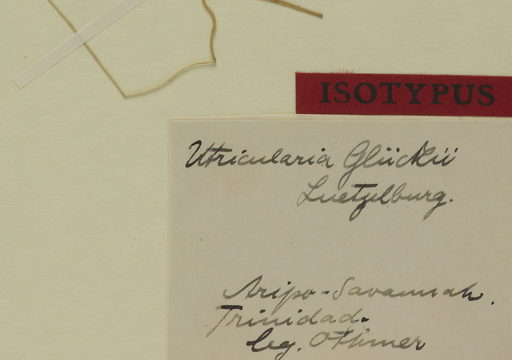 ISOTYPUS
Utricularia Glückii
Luetzelburg.
Aripo-Savannah.
Trinidad.
leg. Othmer